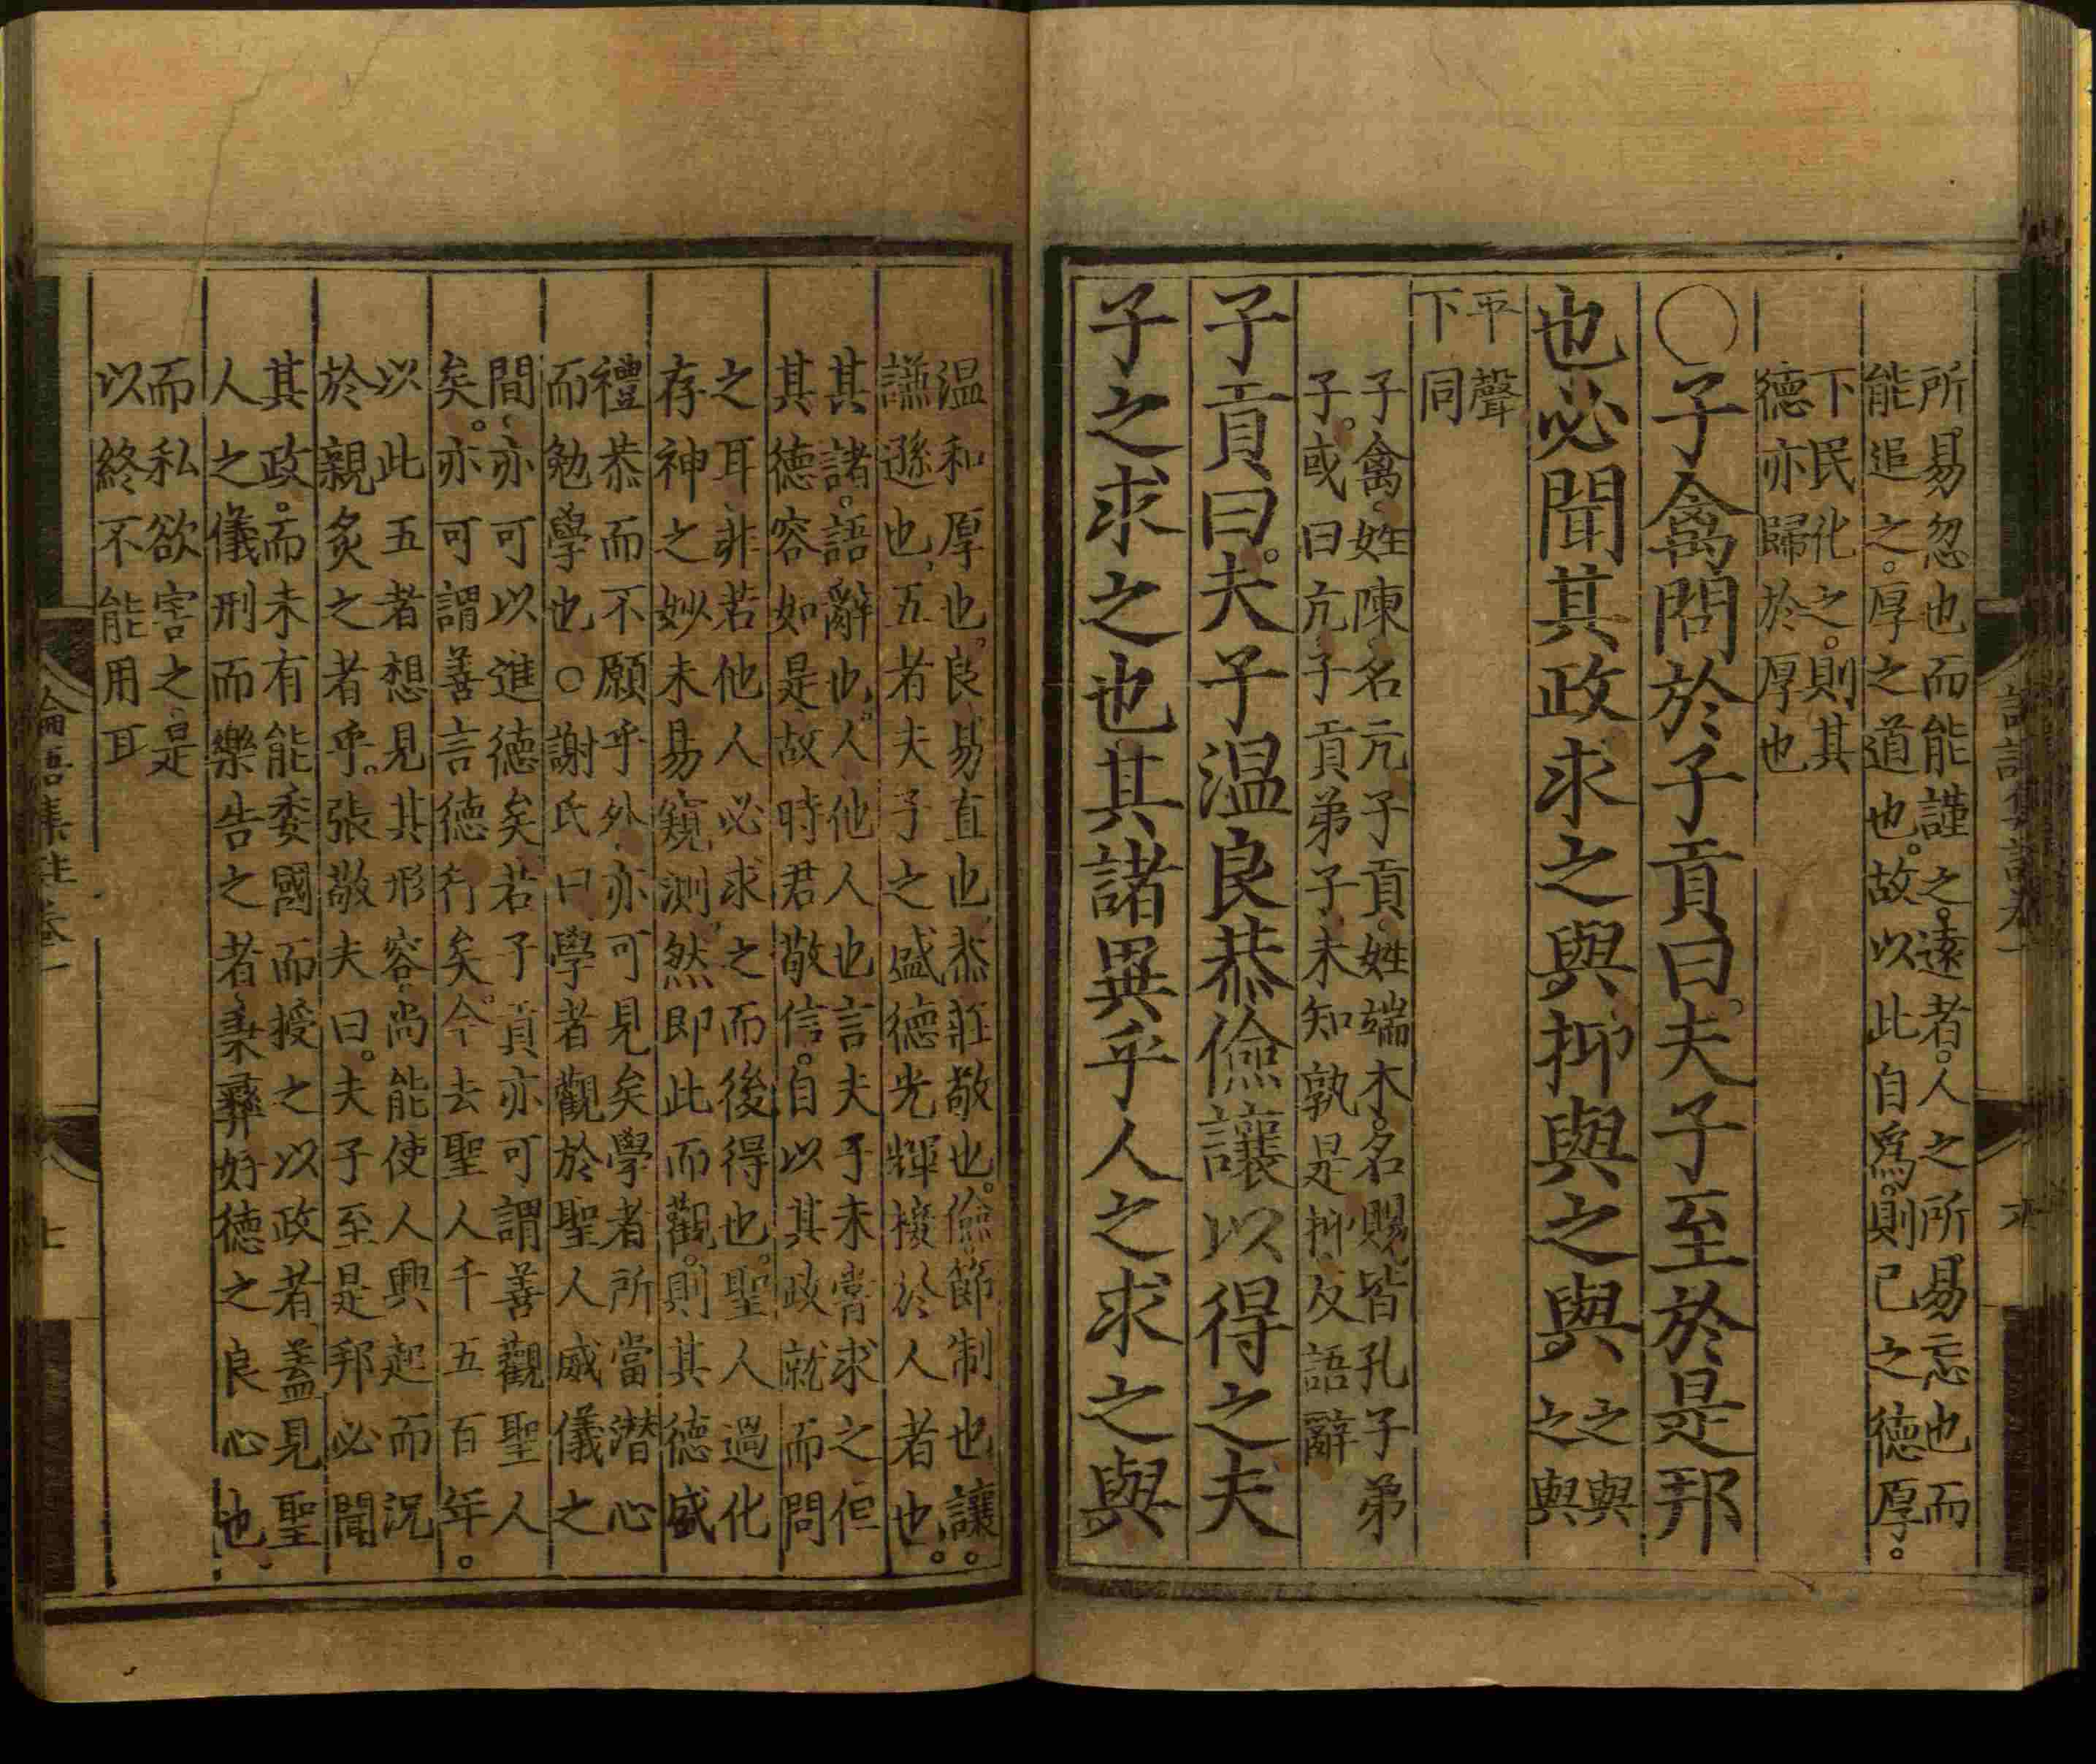 所易忽也而能謹之。遠者。人之所易忘也而
能追之。厚之道也。故以此自爲。則己之德厚。
下民化之。則其
德亦歸於厚也
〇子禽問於子貢曰。夫子至於是邦
也必聞其政求之與抑與之與
之與
之與
平聲
下同
子禽。姓陳。名亢子貢。姓端木。名賜。皆孔子弟
子。或曰亢子貢弟子未知孰是抑反語辭
子貢曰。夫子温良恭儉讓以得之夫
子之求之也其諸異乎人之求之與
温和厚也。良、易直也、恭莊敬也。儉、節制也讓。
謙遜也、五者夫子之盛德光輝接於人者也。
其諸。語辭也。人他人也言夫子未嘗求之但
其德容如是、故時君敬信。自以其政就而問
之耳、非若他人必求之而後得也。聖人過化
存神之妙未易窺測、然即此而觀。則其德盛
禮恭而不願乎外、亦可見矣學者所當潛心
而勉學也〇謝氏曰學者觀於聖人威儀之
間、亦可以進德矣若子貢亦可謂善觀聖人
矣。亦可謂善言德行矣。今去聖人千五百年。
以此五者想見其形容、尚能使人興起而況
於親炙之者乎。張敬夫曰。夫子至是邦必聞
其政。而未有能委國而授之以政者蓋見聖
人之儀刑而樂告之者、秉彝好德之良心也、
而私欲害之、是
以終不能用耳
論語集註卷一
七